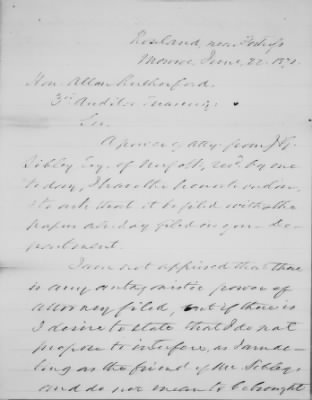 Roseland, near Fortress
Monroe, June, 22. 1870.
Hon. Allan Rutherford.
3rd Auditor Treasury.
Sir
A power of atty. from J. 
Sibley Esq. of Norfolk, recd. by me
today, I have the honor to enclose,
& to ask that it be filed with the
papers already filed in your De-
partment.
I am not apprised that there
is any antagonistic power of
attorney filed, but if there is
I desire to state that I do not
propose to interfere, as I am ac-
ting as the friend of Mr Sibley
and do not mean to be brought